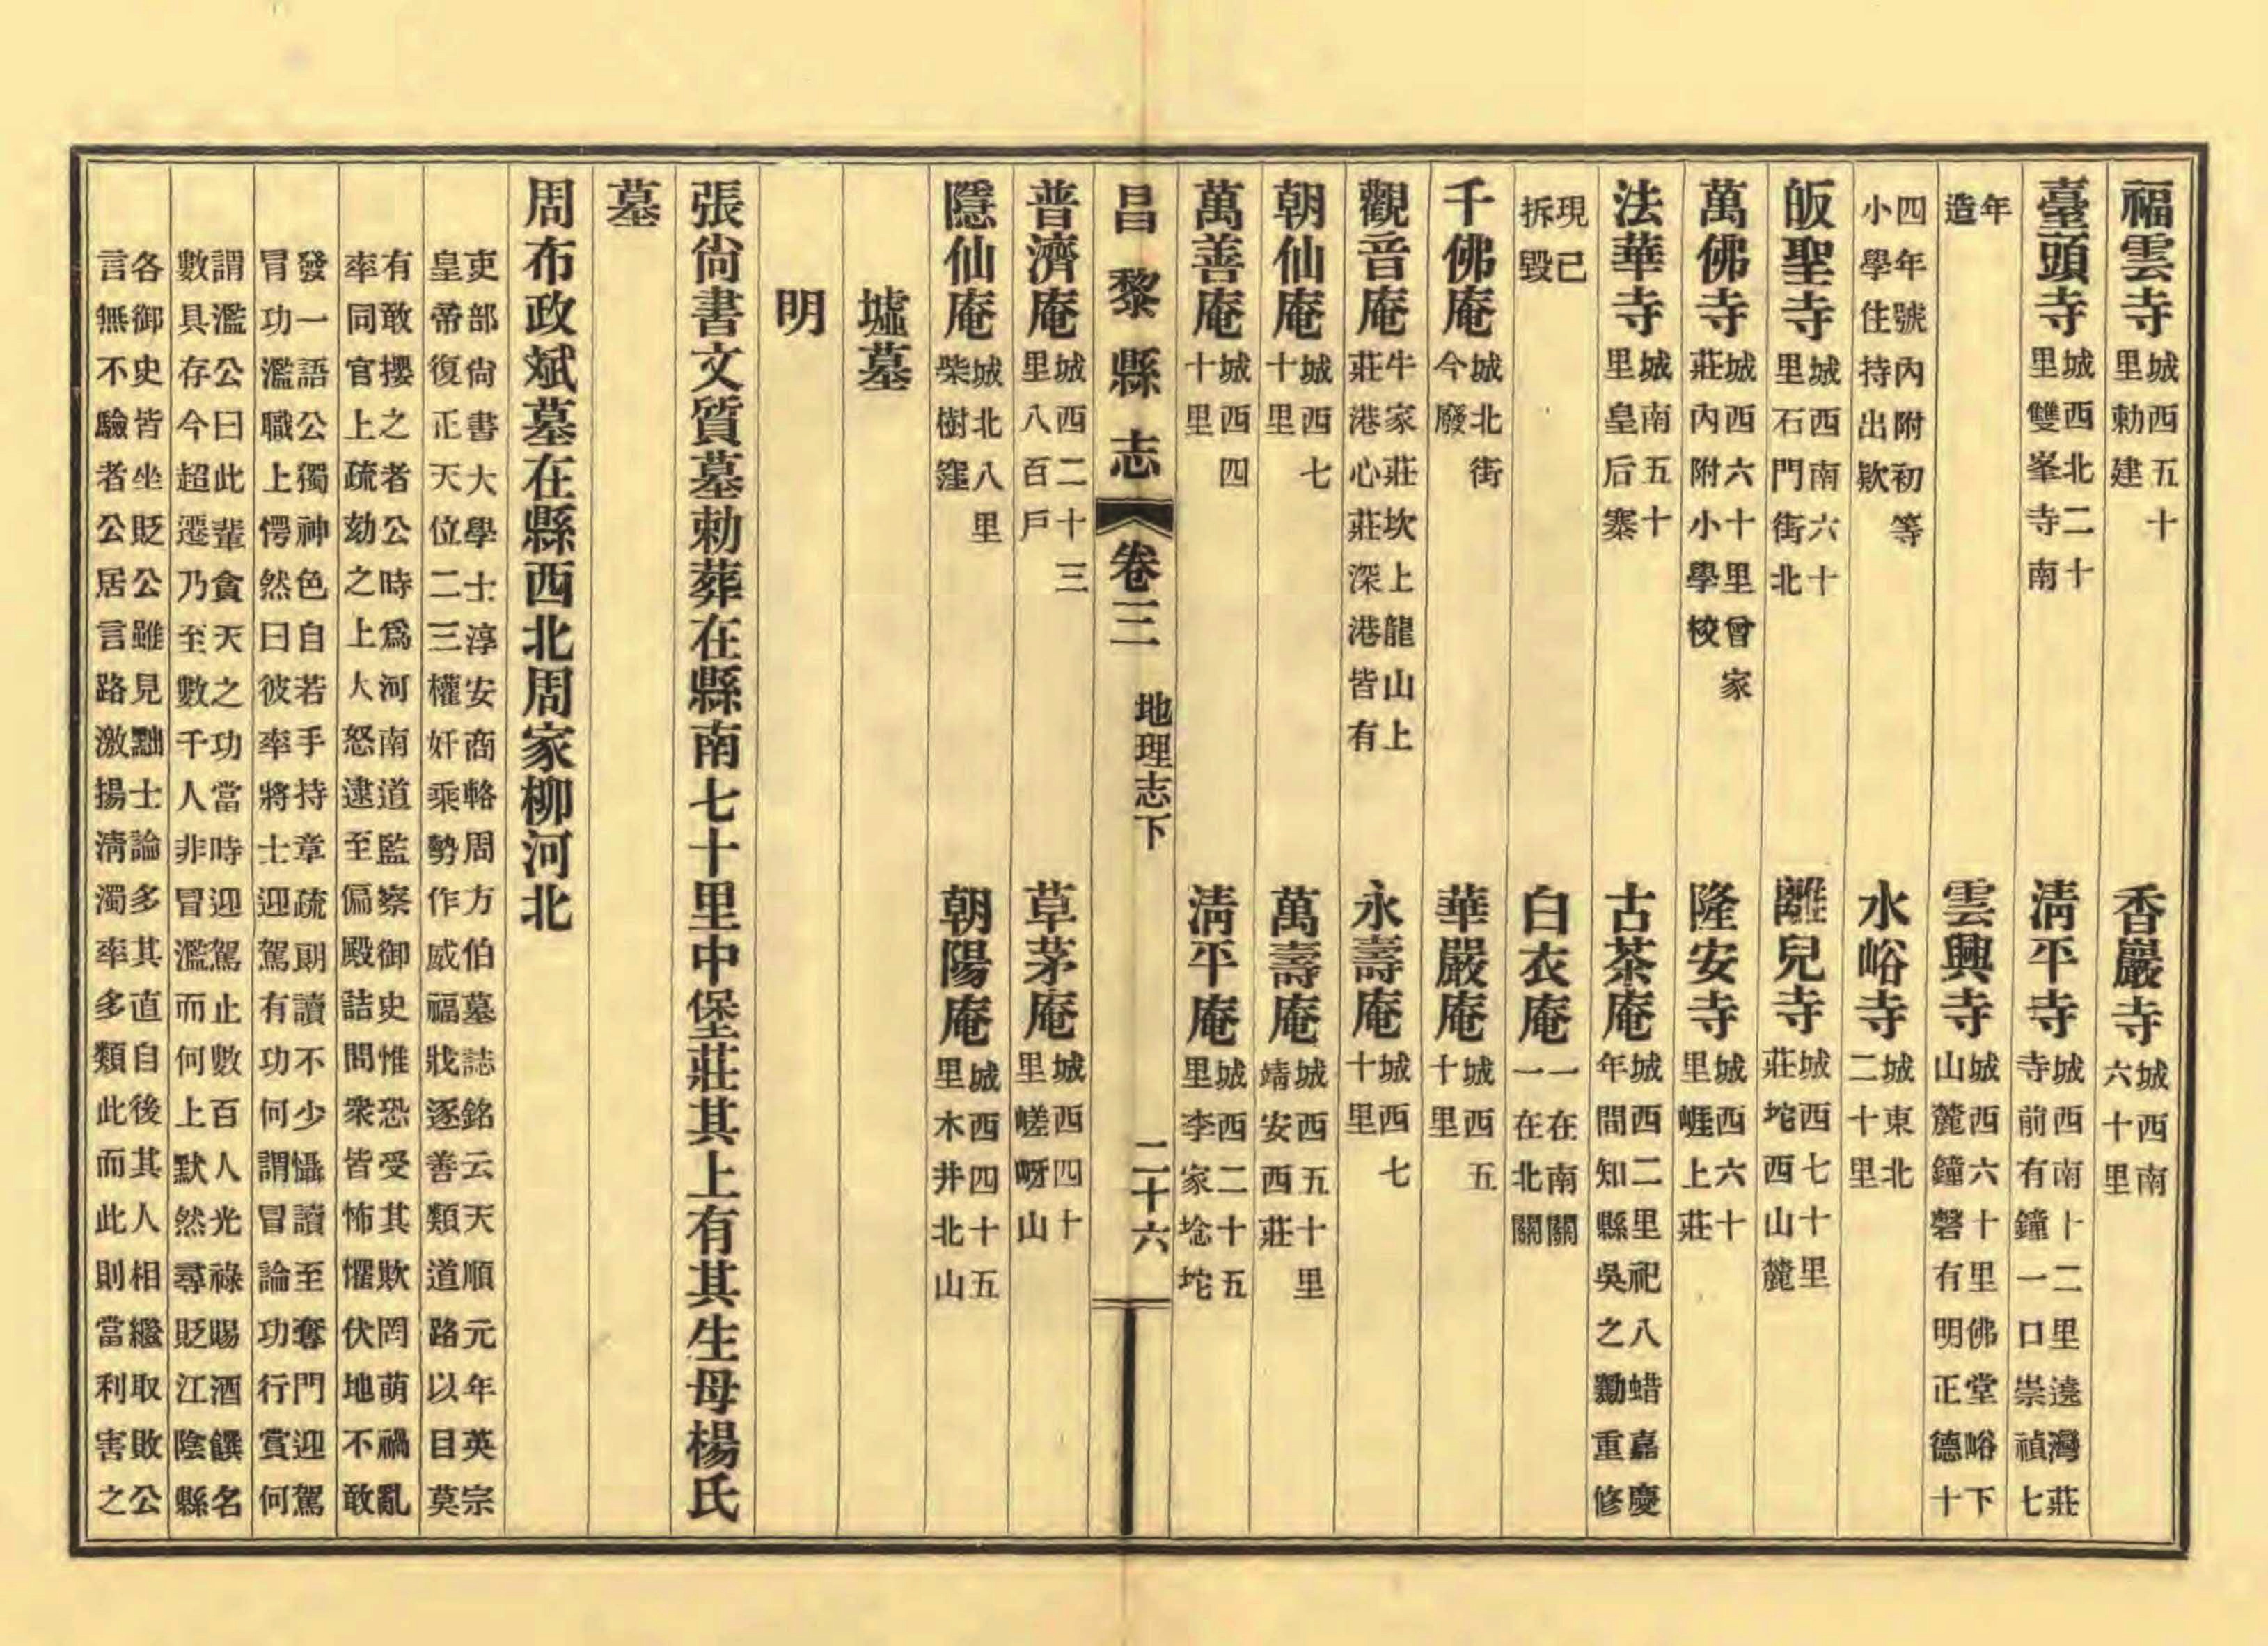 福雲寺城西五十里勅建　香巖寺城西南六十里
臺頭寺城西北二十里雙峯寺南　清平寺城西南十二里遶灣莊寺前有鐘一口崇禎七
年造　雲興寺城西六十里佛堂峪下山麓鐘磬有明正德十
四年號內附初等小學住持出欵　水峪寺城東北二十里
皈聖寺城西南六十里石門街北　離兒寺城西七十里莊坨西山麓
萬佛寺城西六十里曾家莊內附小學校　隆安寺城西六十里崕上莊
法華寺城南五十里皇后寨　古茶庵城西二里祀八蜡嘉慶年間知縣吳之勷重修
現已拆毀　白衣庵一在南關一在北關
千佛庵城北街今廢　華嚴庵城西五十里
觀音庵牛家莊坎上龍山上莊港心莊深港皆有　永壽庵城西七十里
朝仙庵城西七十里　萬壽庵城西五十里靖安西莊
萬善庵城西四十里　清平庵城西二十五里李家埝坨
昌黎縣志　卷三　地理志下　二十六
普濟庵城西二十三里八百戶　草茅庵城西四十里嵯岈山
隱仙庵城北八里柴樹窪　朝陽庵城西四十五里木井北山
墟墓
明
張尙書文質墓勅葬在縣南七十里中堡莊其上有其生母楊氏
墓
周布政斌墓在縣西北周家柳河北
吏部尙書大學士淳安商輅周方伯墓誌銘云天順元年英宗
皇帝復正天位二三權奸乘勢作威福戕逐善類道路以目莫
有敢攖之者公時爲河南道監察御史惟恐受其欺罔萌禍亂
率同官上疏劾之上大怒逮至偏殿詰問衆皆怖懼伏地不敢
發一語公獨神色自若手持章疏朗讀不少懾讀至奪門迎駕
冒功濫職上愕然曰彼率將士迎駕有功何謂冒論功行賞何
謂濫公曰此輩貪天之功當時迎駕止數百人光祿賜酒饌名
數具存今超遷乃至數千人非冒濫而何上默然尋貶江陰縣
各御史皆坐貶公雖見黜士論多其直自後其人相繼取敗公
言無不驗者公居言路激揚淸濁率多類此而此則當利害之